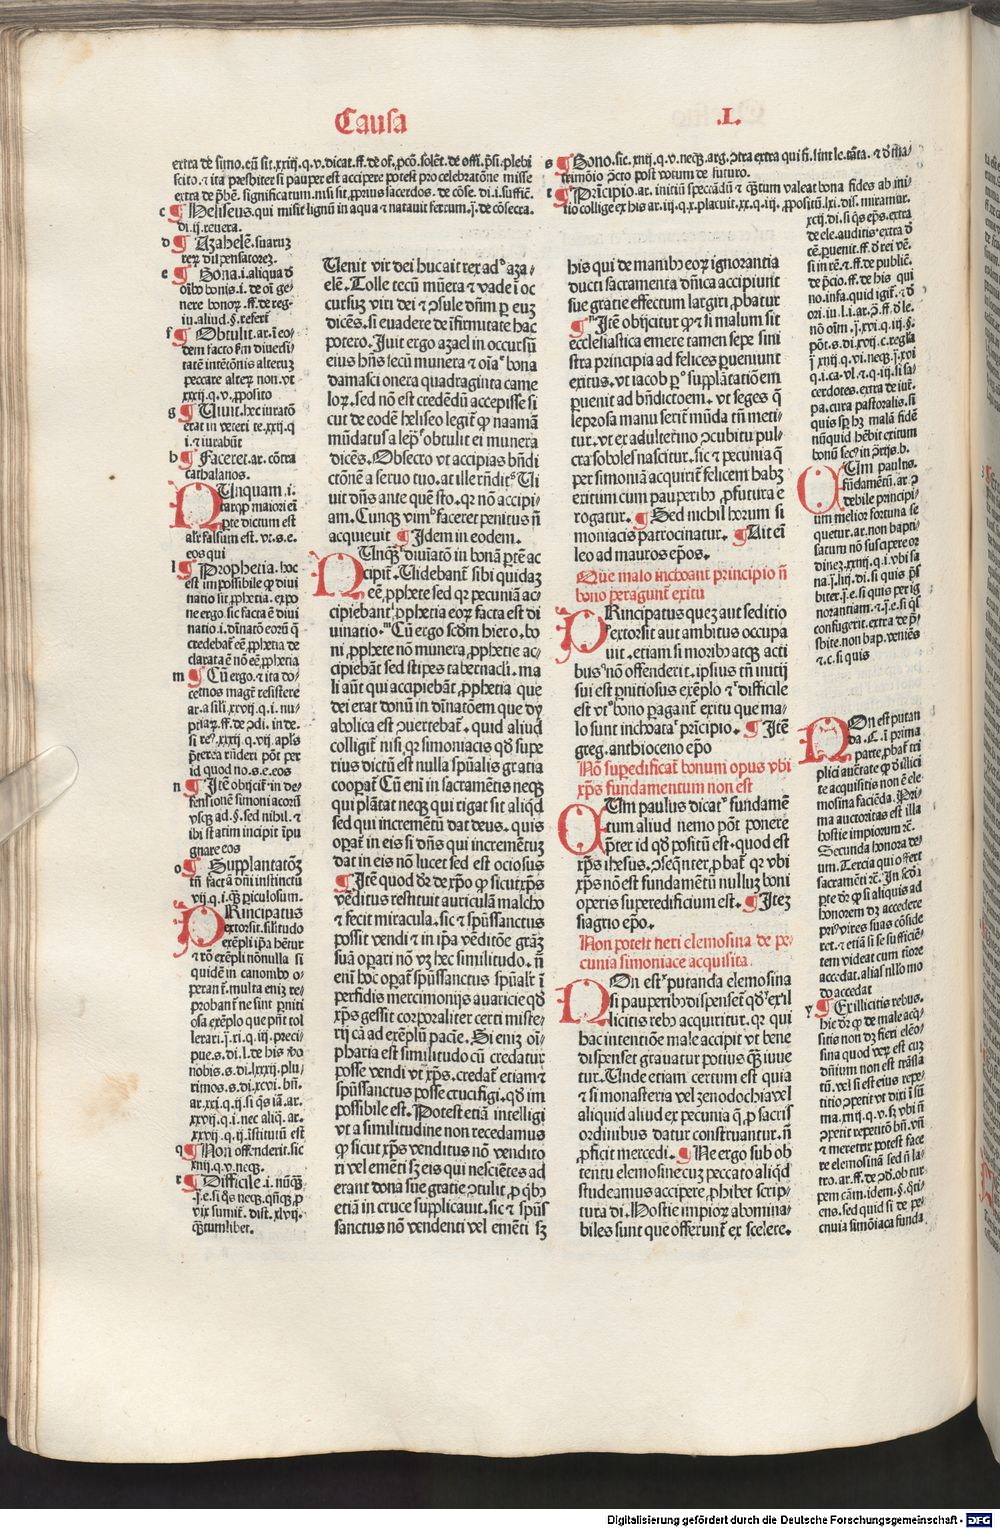 Causa
.I.
extra de simo. cū sit. xxiij. q. v. dicat. ff. de of. pcō. solēt. de offi. p̄si. plebi
scito. ⁊ ita presbiter si pauper est accipere potest pro celebratōne misse
extra de p̄bē. significatum. nisi sit ꝓprius sacerdos. de cōse. di. i. sufficē.
c ¶ Heliseus. qui misit lignū in aqua ⁊ natauit ferrum. j. de cōsecra.
di. ij. reuera.
d ¶ Azahelē. suaruꝫ
reꝝ dispensatoreꝫ.
e ¶ Bona. i. aliqua đ
oībꝰ bonis. i. de oī ge-
nere bonoꝝ. ff. de reg-
iu. aliud. §. refert
f ¶ Obtulit. ar. i eo-
dem facto ẜm diuersi-
tatē intētōnis alteruꝫ
peccare alteꝝ non. vt
xxij. q. v. ꝓposito
g ¶ Uiuit. hec iuratō
erat in veteri te. xxij. q
i. ⁊ iurabūt
h ¶ Faceret. ar. cōtra
cathalanos.
NUnquam. i.
rarοqꝫ maiori eī
ꝑte dictum est
als falsum est. vt. s. e.
eos qui
l ¶ Prophetia. hoc
est impossibile ꝙ diui
natio sit ꝓphetia. expo
ne ergo. sic facta ē diui
natio. i. diuinatō eoꝝ q̄
credebat̄ eē ꝓphetia de
clarata ē nō eē ꝓphetia
m ¶ Cū ergo. ⁊ ita do-
cemos magē resistere
ar. a sili xxvij. q. i. nu-
ptiaꝝ. ff. de ꝯdi. in de.
si reꝰ. xxxij. q. vij. apl's
p̄terea rn̄deri pōt per
id quod no. s. e. eos
n ¶ Itē obijcit̄ in de-
fensionē simoniacorū
vsqꝫ ad. §. sed nihil. ⁊
ibi statim incipit ip̄u
gnare eos
o ¶ Supplantatōꝫ
tn̄ facta dn̄i instinctu
vij. q. i. qꝫ periculosum.
PRincipatus
extorsit. silitudo
exēpli ip̄a hētur
⁊ rō exēpli nō nulla si
quidē in canonibꝰ o-
peran̄t. multa eniꝫ re-
probant̄ ne sint p̄niti
osa exēplo que pn̄t tol
lerari. j. xi. q. iii. preci-
pue. s. di. l. de his vo
nobis. s. di. lxxxij. plu-
rimos. s. di. xcvi. bn̄.
ar. xxi. q. ij. si q̄s iā. ar.
xxvij. q. i. nec aliq. ar.
xxvij. q. ij. istitutū est
q ¶ Non offenderit. sic
xiiij. q. v. neqꝫ.
r ¶ Difficile. i. nūqꝫ.
j. e. si q̄s neqꝫ. qn̄qꝫ ꝓ
vix sumit̄. dist. xlvij.
qꝫtumlibet.
Uenit vir dei huc ait rex ad azá-
elē. Tolle tecū mūera ⁊ vade ī oc
cursuꝫ viri dei ⁊ ꝯsule dn̄m ꝑ euꝫ
dicēs. si euadere de īfirmitate hac
potero. Iuit ergo azael in occursū
eius hn̄s secū munera ⁊ oīa bona
damasci onera quadraginta came
loꝝ. sed nō est credēdū accepisse si
cut de eodē heliseo legit̄ ꝙ naamā
mūdatus a lep̄ obtulit ei munera
dicēs. Obsecro vt accipias bn̄di
ctōnē a seruo tuo. at ille rn̄dit. Ui
uit dn̄s ante quē sto. qꝛ nō accipi-
am. Cunqꝫ vim faceret penitus n̄
acquieuit ¶ Idem in eodem.
NUnqꝫ diuinatō in bonā p̄tē ac
cipit̄. Uidebant̄ sibi quidaꝫ
eē ꝓphete sed qꝛ pecuniā ac-
cipiebant ꝓphetia eoꝝ facta est di
uinatio. Cū ergo scdm hiero. bo
ni ꝓphete nō munera ꝓphetie ac-
cipiebāt sed stipes tabernacli. ma
li aūt qui accipiebāt ꝓphetia que
dei erat donū in diuinatōem que dy
abolica est ꝯuertebat̄. quid aliud
colligit̄ nisi qꝛ simoniacis qđ supe
rius dictū est nulla sp̄ualis gratia
cooperat̄ Cū enī in sacramētis neqꝫ
qui plātat neqꝫ qui rigat sit aliqd
sed qui incremētū dat deus. quis
operat̄ in eis si dn̄s qui incremētuꝫ
dat in eis nō lucet sed est ociosus
¶ Itē quod dr̄ de xp̄o ꝙ sicut xp̄s
vēditus restituit auriculā malcho
⁊ fecit miracula. sic ⁊ sp̄ussanctus
possit vendi ⁊ in ipa vēditōe grāꝫ
suā operari nō vꝫ hec similitudo. n̄
enī hoc operat̄ sp̄ussanctus sp̄ualit̄ ī
perfidis mercimonijs auaricie qđ
xp̄s gessit corporaliter certi miste-
rij cā ad exēplū paciē. Si eniꝫ oī-
pharia est similitudo cū credatur
posse vendi vt xp̄s. credat̄ etiam ⁊
sp̄ussanctus posse crucifigi. qđ im
possibile est. Potest etiā intelligi
vt a similitudine non recedamus
ꝙ sicut xp̄s venditus nō vendito
ri vel emēti sꝫ eis qui nesciētes ad
erant dona sue gratie ꝯtulit. ꝓ qͥbꝰ
etiā in cruce supplicauit. sic ⁊ sp̄us
sanctus nō vendenti vel emēti sꝫ
s ¶ Bono. sic. xiiij. q. v. neqꝫ. arg. ꝯtra extra qui fi. sint le. tāta. ⁊ đ ma-
trimōio ꝯcto post votum de futuro.
t ¶ Pricipio. ar. initiū speccādū ⁊ qꝫtum valeat bona fides ab ini-
tio collige ex his ar. iij. q. x. placuit. xx. q. iij. ꝓpositū. lxi. dis. miramur.
his qui de manibꝰ eoꝝ ignorantia
ducti sacramenta dn̄ica accipiunt
sue gratie effectum largiri ꝓbatur
¶ Itē obijcitur ꝙ ⁊ si malum sit
ecclesiastica emere tamen sepe sini
stra principia ad felices ꝓueniunt
exitus. vt iacob ꝑ supplātatiōem
ꝑuenit ad bn̄dictoem. vt seges q̄
leprosa manu serit̄ mūda tn̄ meti-
tur. vt ex adulterino ꝯcubitu pul-
cra soboles nascitur. sic ⁊ pecunia q̄
per simoniā acquirit̄ felicem habꝫ
exitum cum pauperibꝰ ꝓfutura e
rogatur. ¶ Sed nichil horum si
moniacis patrocinatur. ¶ Ait ei
leo ad mauros ep̄os.
Que malo inchoant principio n̄
bono peragunt exitu
PRincipatus queꝫ aut seditio
extorsit aut ambitus occupa
uit. etiam si moribꝰ atqꝫ acti
bus nō offenderit. ipsius tn̄ initij
sui est p̄nitiosus exēplo ⁊ difficile
est vt bono peragant̄ exitu que ma-
lo sunt inchoata p̄ricipio. ¶ Itē
greg. anthioceno ep̄o
Nō superedificat̄ bonum opus vbi
xp̄s fundamentum non est
CUm paulus dicat fundamē
tum aliud nemo pōt ponere
p̄ter id qđ positū est. quod est
xp̄s ihesus. ꝯseqn̄ter ꝓbat̄ qꝛ vbi
xp̄s nō est fundamētū nulluꝫ boni
operis superedificium est. ¶ Iteꝫ
siagrio ep̄o.
Non potest fieri elemosina de pe-
cunia simoniace acquisita
NOn est putanda elemosina
si pauperibꝰ dispenset̄ qđ ex il
licitis rebꝰ acquiritur. qꝛ qui
hac intentiōe male accipit vt bene
dispenset grauatur potius qꝫ iuue
tur. Unde etiam certum est quia
⁊ si monasteria vel zenodochia vel
aliquid aliud ex pecunia q̄ ꝓ sacris
ordinibus datur construantur. n̄
ꝓficit mercedi. ¶ Ne ergo sub ob
tentu elemosine cuꝫ peccato aliqd
studeamus accipere ꝓhibet scrip-
tura di. Hostie impioꝝ abomina-
biles sunt que offerunt̄ ex scelere.
xcij. di. si q̄s ep̄s. extra
de ele. auditis. extra đ
cē. peruenit. ff. đ rei vē.
si in rē. ⁊ ff. de publiē.
de p̄cio. ff. de his qui
no. infa. quid igit̄. ⁊ đ
ori. iu. l. i. ar. ꝯ. ff. đ le.
nō oīm. j. xvi. q. iij. §.
pōt. s. di. xvij. c. regla
j. xiiij. q. vi. neqꝫ. j. xvi
q. i. ca. vl. ⁊. q. iij. si sa-
cerdotes. extra de iur̄.
pa. cura pastoralis. si
quis sꝑ hꝫ malā fidē
nūquid hēbit exitum
bonū sec in ꝯtrijs. b.
CUm paulus.
fūdamētū. ar. ꝯ
debile principi-
um melior fortuna se
quetur. ar. non bapti-
satum nō suscipere or
dineꝫ. xxiij. q. i. vbi sa
na. j. iiij. di. si quis p̄s
biter. j. e. si quis per ig
norantiam. ⁊. j. e. si q̄s
confugerit. extra de p̄-
sbite. non bap. veniēs
⁊. c. si quis
NOn est putan
da. C. i prima
parte ꝓbat̄ tri
plici auct̄ate ꝙ đ illici
te acquisitis non ē ele-
mosina faciēda. Pri-
ma auctoritas est illa
hostie impiorum ⁊c̄.
Secunda honora de-
um. Tercia qui offert
sacramēti ⁊c̄. In scd̄a
ꝑte dr̄ ꝙ si aliquis ad
honorem dꝫ accedere
pri vires suas cōside
ret. ⁊ etiā si se sufficiē-
tem videat cum tiore
accedat. alias nllo mo
do accedat
y ¶ Ex illicitis rebus.
hic dr̄ ꝙ de male acq-
sitis non dꝫ fieri elēo-
sina quod veꝝ est cuꝫ
dn̄ium non est trāsla
tū. vel si est eius repe-
titio ꝯpetit vt dixi ī sū
ma. xiiij. q. v. sꝫ vbi n̄
ꝯpetit repetitō bn̄. vn̄
⁊ meretrix potest face
re elemosinā sed n̄ la-
tro. ar. ff. de ꝯđ. ob tur
pem cām. idem. §. q̄ti-
ens. sed quid si de pe-
cunia simōiaca funda
Digitalisierung gefördert durch die Deutsche Forschungsgemeinschaft - DFG